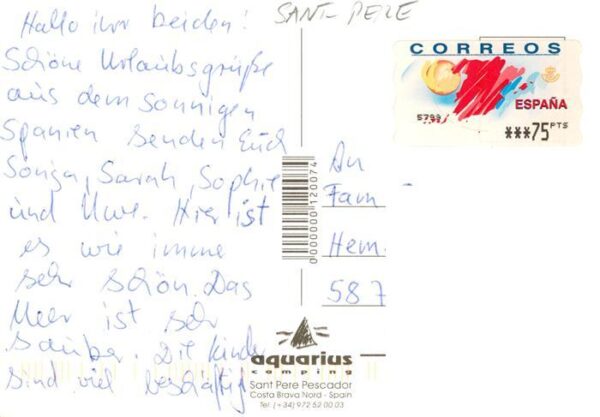 Hallo ihr beiden!
Schöne Urlaubsgrüße
aus dem sonnigen
Spanien senden Euch
Sonja, Sarah, Sophie
und Uwe. Hier ist
es wie imme
sehr schön. Das
Meer ist sehr
sauber. Die Kinder
sind viel beschäftig
SANT PERE
CORREOS
ESPAÑA
5799
***75 PTS
An
Fam
Hem.
587
0000000120074
aquarius
camping
Sant Pere Pescador
Costa Brava Nord - Spain
Tel. (+34) 972 52 00 03